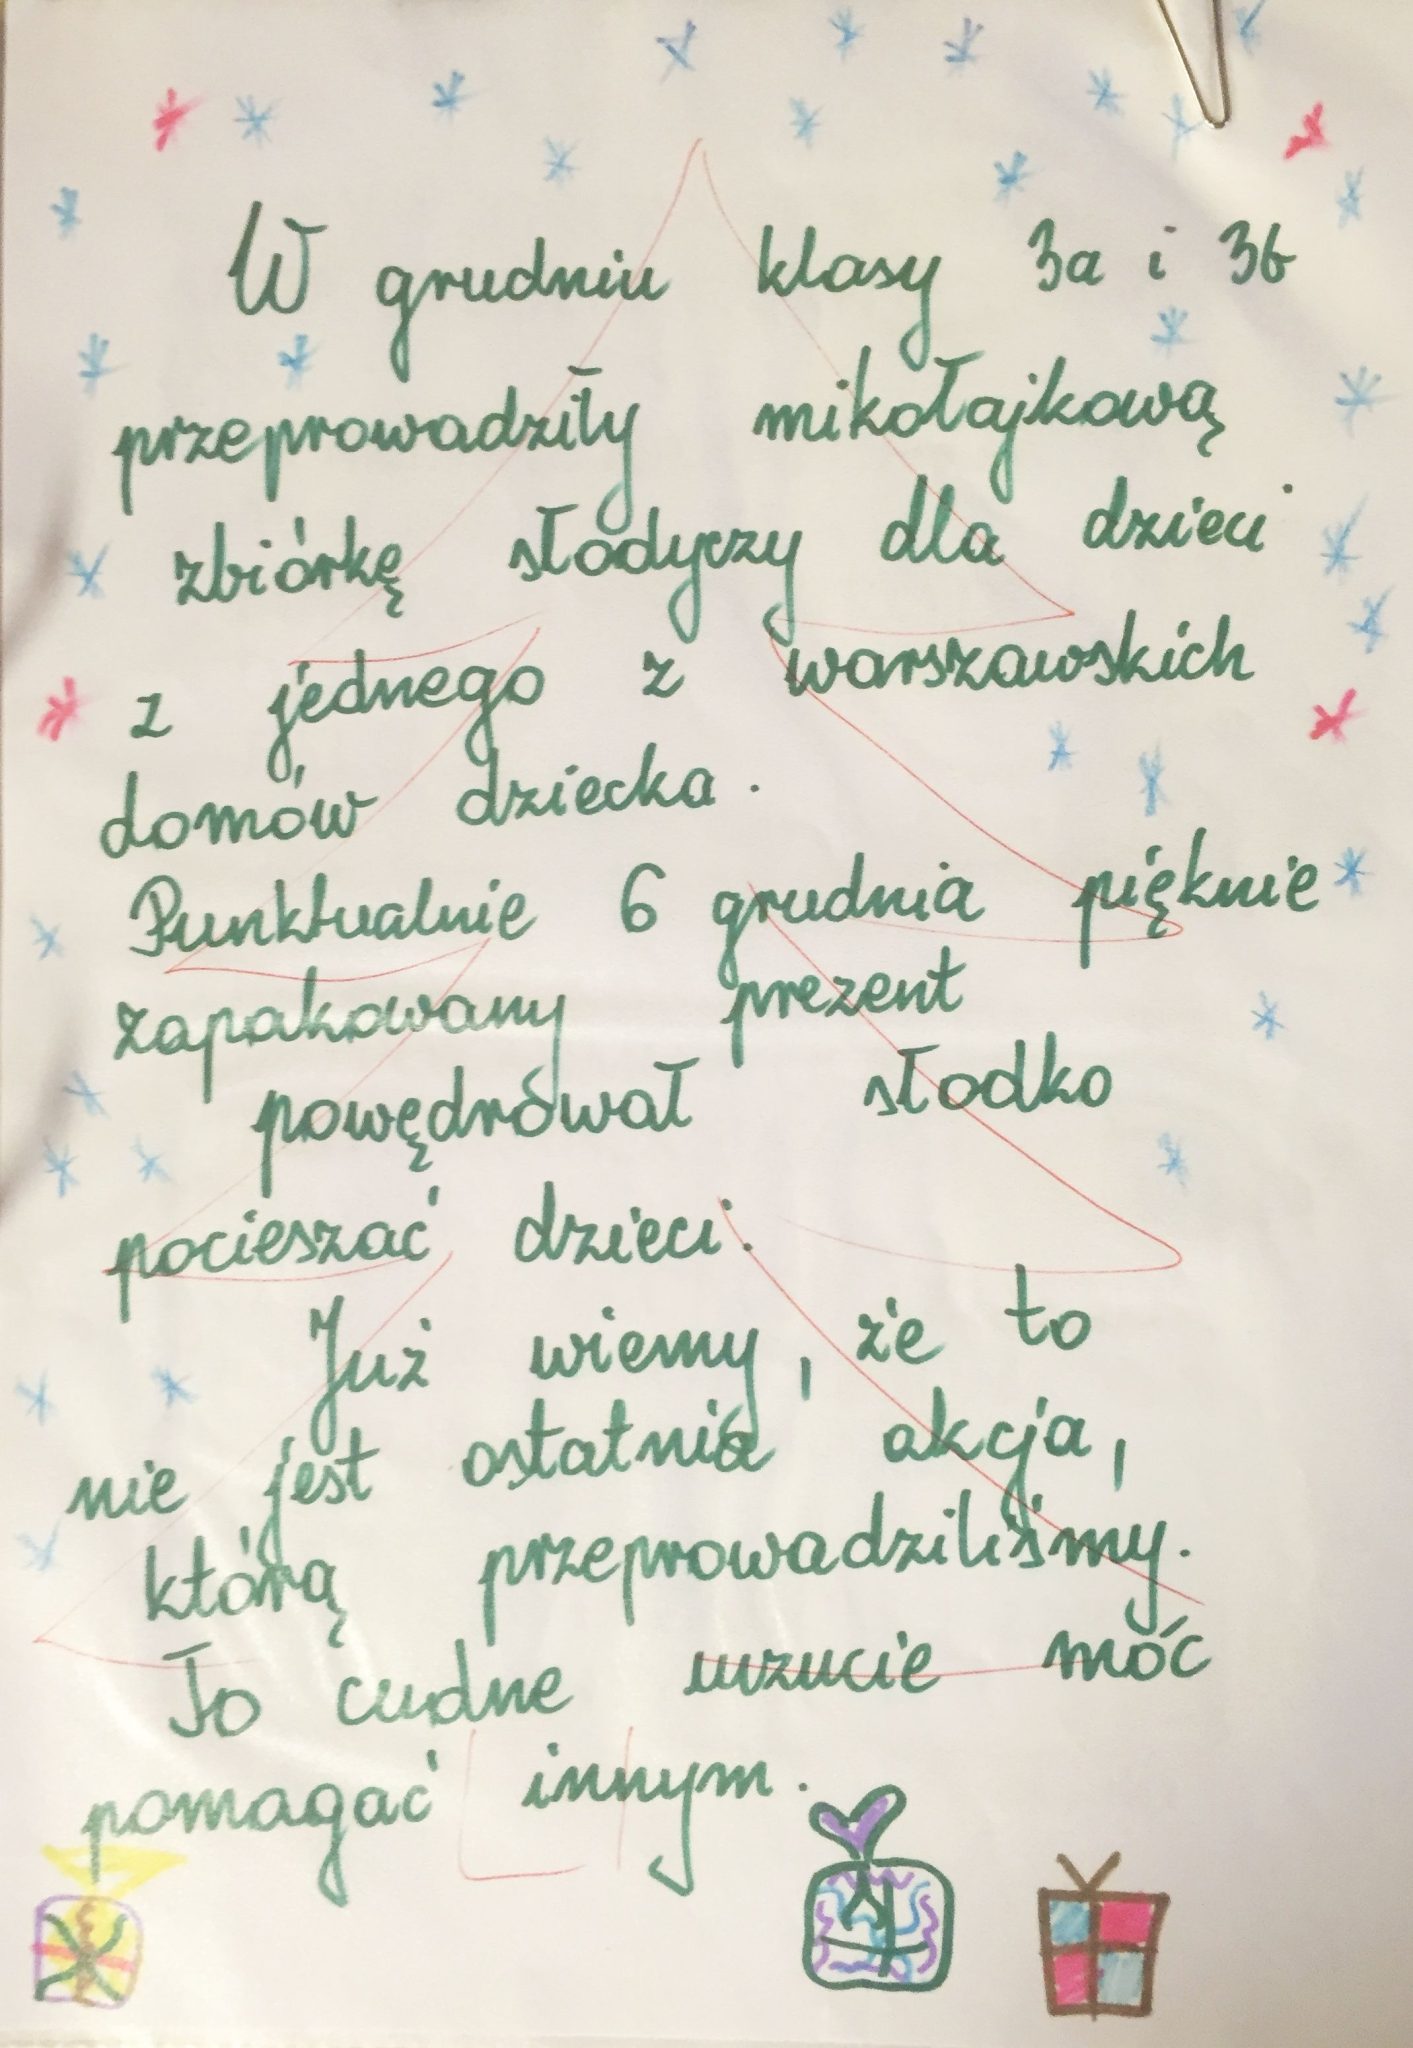 W grudniu klasy 3a i 3b
przeprowadziły mikołajkową
zbiórkę słodyczy dla dzieci
z jednego z warszawskich
domów dziecka.
Punktualnie 6 grudnia pięknie
zapakowany prezent
powędrował słodko
pocieszać dzieci.
Już wiemy, że to
nie jest ostatnia akcja,
którą przeprowadziliśmy.
To cudne uczucie móc
pomagać innym.